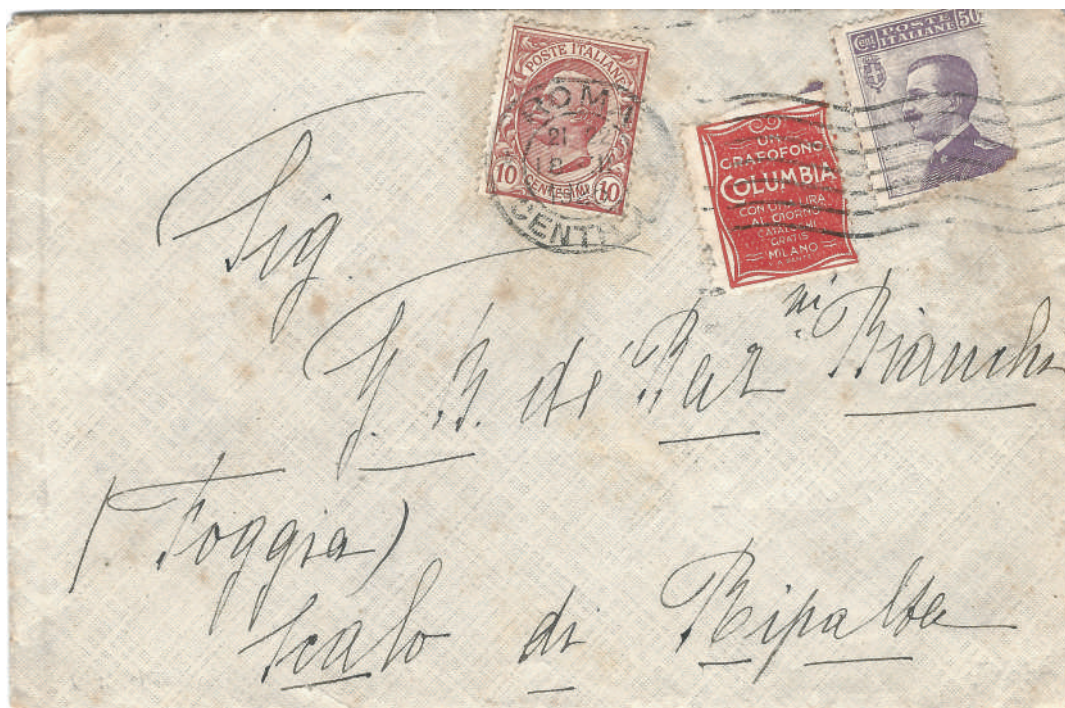 POSTE ITALIANE
10 CENTESIMI 10
ROMA
21
CENTRO
UN
GRAFOFONO
COLUMBIA
CON UNA LIRA
AL GIORNO
CATALOGHI
GRATIS
MILANO
Cent. POSTE ITALIANE 50
Sig.
G. B. de Paz ni Bianchi
(Foggia)
Scalo di Ripalta